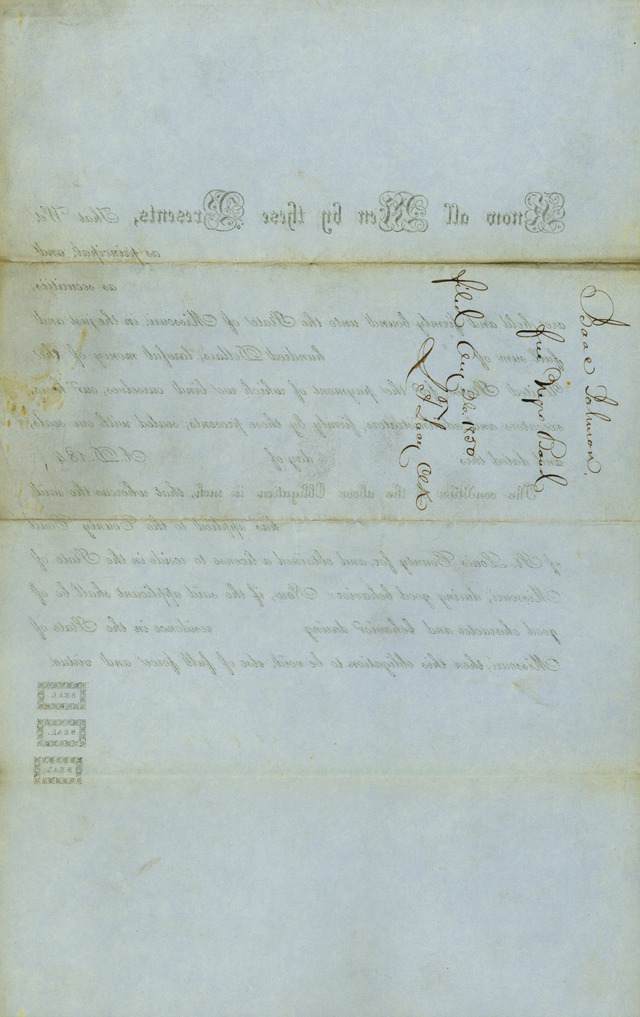 Isaac Tolman.
free Negro Bond
filed Aug 26. 1850
Clk
Know all Men by these Presents, That We
as principal, and
as securities,
are held and firmly bound unto the State of Missouri, in the just and
full sum of hundred Dollars, lawful money of the
United States, the payment of which we bind ourselves, our heirs,
executors and administrators, firmly by these presents, sealed with our seals
and dated this day of A.D. 184 ,
The condition of the above Obligation is such, that whereas the said
has applied to the County Court
of St. Louis County for, and obtained a license to reside in the State of
Missouri, during good behavior: Now, if the said applicant shall be of
good character and behavior during residence in the State of
Missouri, then this obligation to be void, else of full force and virtue.
SEAL.
SEAL.
SEAL.